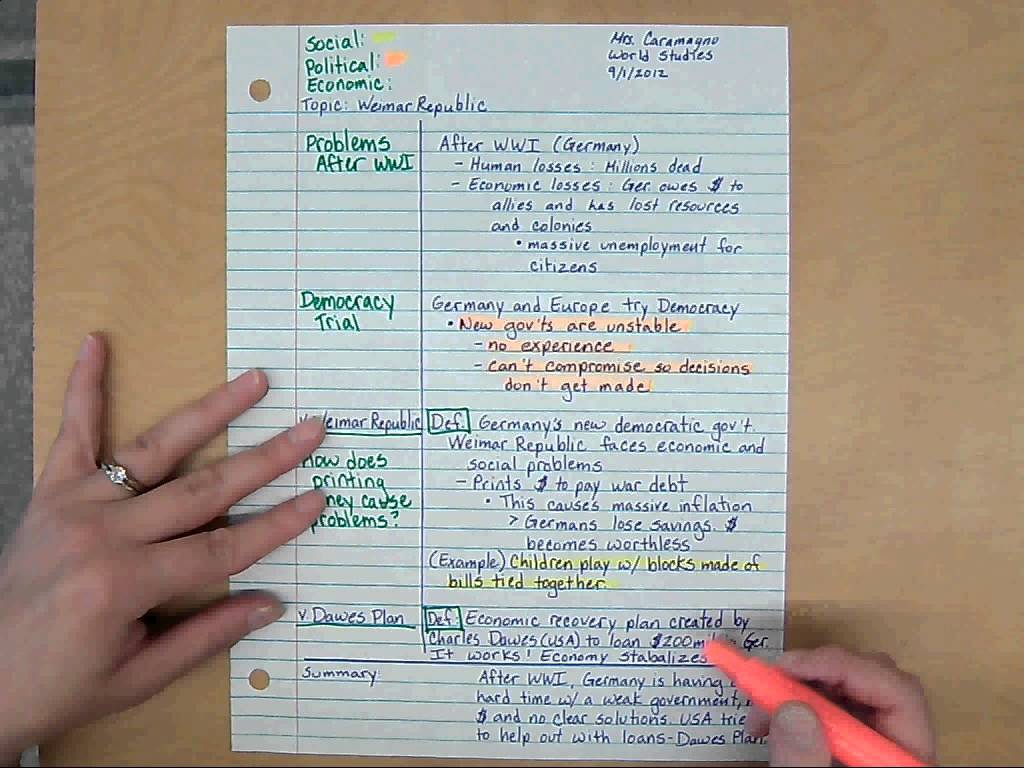 Social:
Political:
Economic:
Mrs. Caramagno
World Studies
9/1/2012
Topic: Weimar Republic
Problems
After WWI
After WWI (Germany)
- Human losses: Millions dead
- Economic losses: Ger. owes $ to
allies and has lost resources
and colonies
• massive unemployment for
citizens
Democracy
Trial
Germany and Europe try Democracy
• New gov'ts are unstable
- no experience
- can't compromise so decisions
don't get made
v Weimar Republic
Def: Germany's new democratic gov't.
Weimar Republic faces economic and
social problems
How does
printing
money cause
problems?
- Prints $ to pay war debt
• This causes massive inflation
> Germans lose savings. $
becomes worthless
(Example) Children play w/ blocks made of
bills tied together.
v Dawes Plan
Def: Economic recovery plan created by
Charles Dawes (USA) to loan $200 Ger.
It works! Economy stabalizes
Summary:
After WWI, Germany is having
hard time w/ a weak government,
$ and no clear solutions. USA trie
to help out with loans-Dawes Plan.